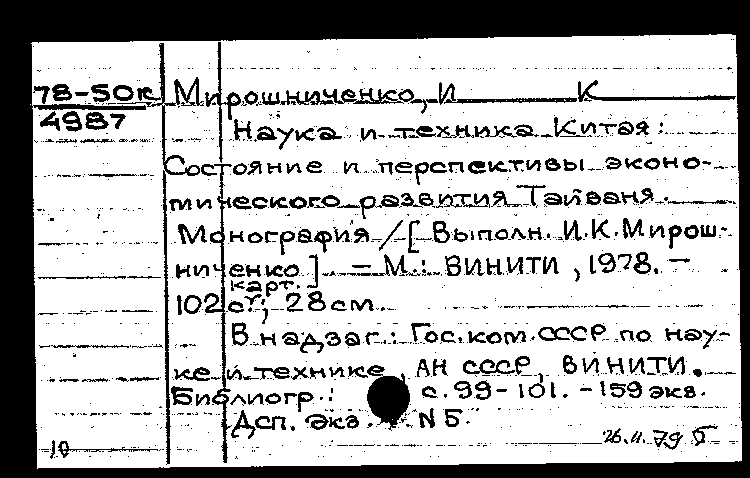 78-50к Мирошниченко, И К
4987
Наука и техника Китая:
Состояние и перспективы эконо-
мического развития Тайваня.
Монография /[Выполн. И.К.Мирош-
ниченко]. - М.: ВИНИТИ, 1978. -
карт.
102 с.; 28 см.
В надзаг.: Гос.ком.СССР по нау-
ке и технике, АН СССР, ВИНИТИ.
Библиогр.: с.99-101. - 159 экз.
Дсп. Экз. N 5.
10 26.11.79